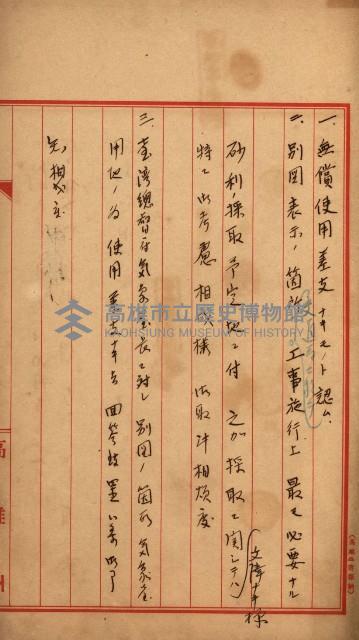 一、無償使用差支ナキモノト認ム
二、別図表示ノ箇所ハ工事施行上最モ必要ナル
砂利採取予定地ニ付之カ採取ニ関シテハ
支障ナキ様
特ニ御考慮相成様御取計相煩度
三、臺湾總督府気象台長ニ対シ別図ノ箇所気象台
用地ノ為使用差支ナキ旨回答致置候条御了
知相成度
高雄市立歷史博物館
KAOHSIUNG MUSEUM OF HISTORY
高雄州